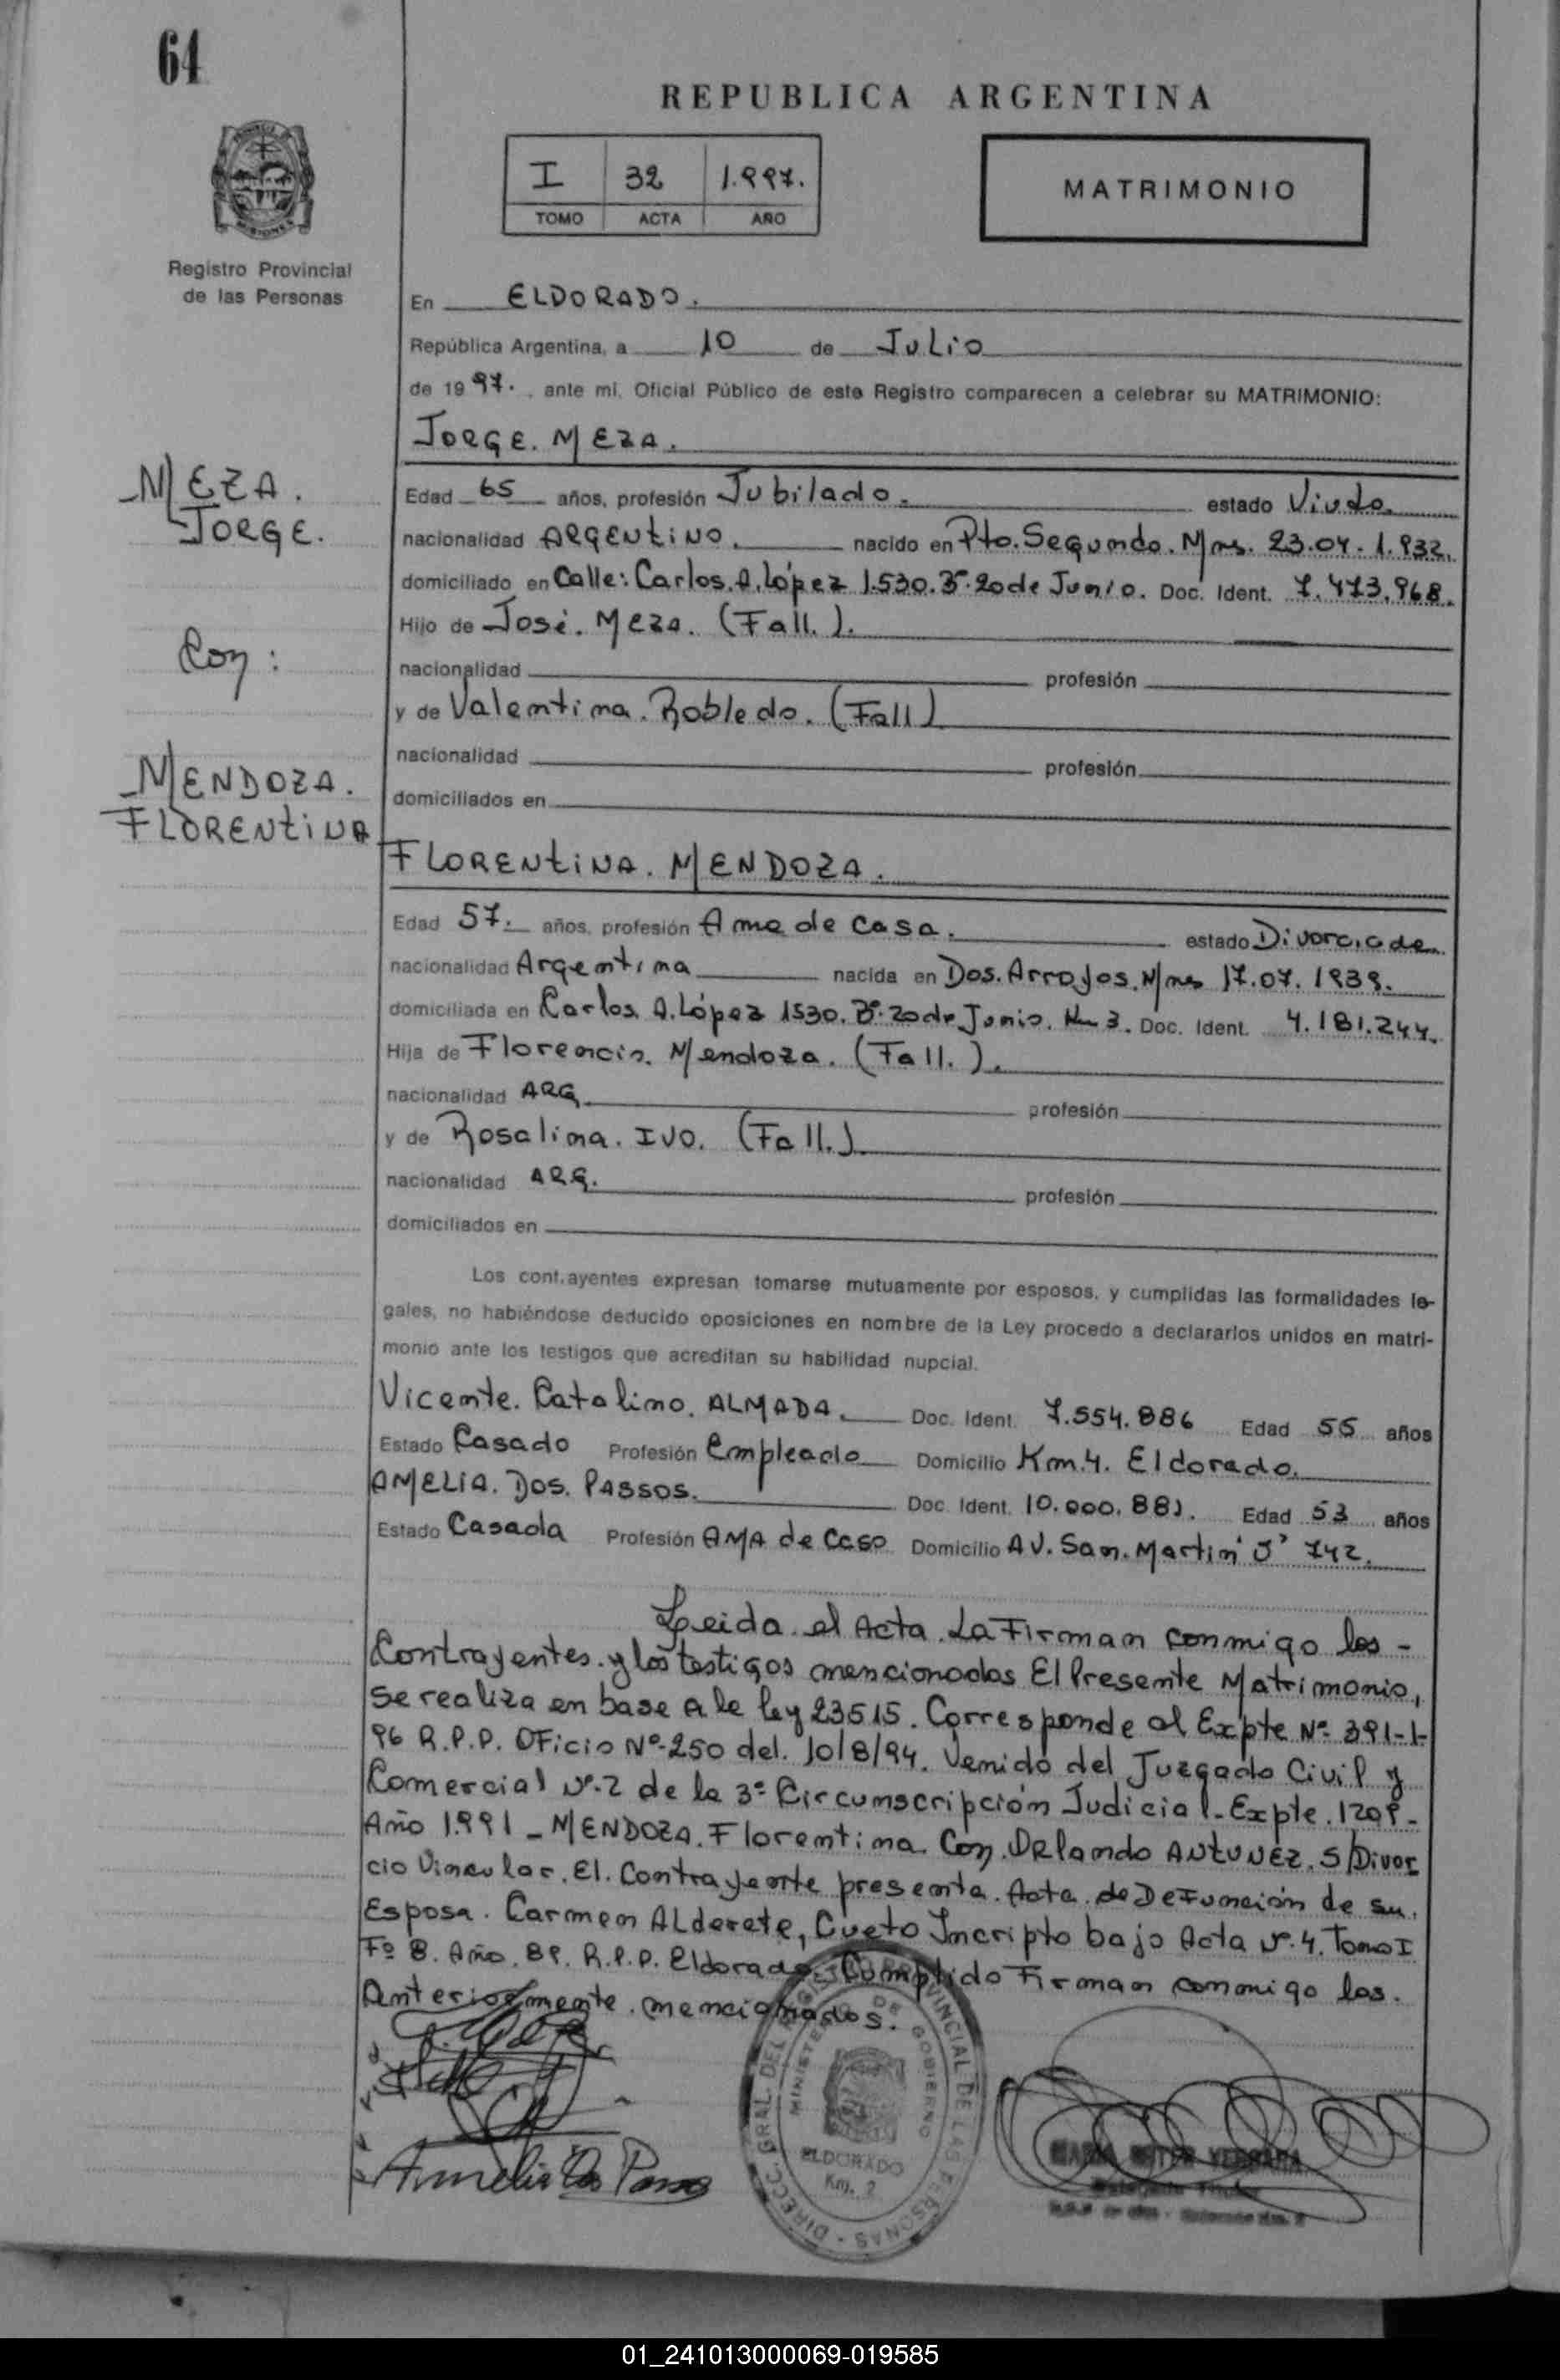 64
REPUBLICA ARGENTINA
I 32 1.997.
TOMO ACTA AÑO
MATRIMONIO
Registro Provincial
de las Personas
En ELDORADO.
República Argentina, a 10 de Julio
de 1997. , ante mi, Oficial Público de este Registro comparecen a celebrar su MATRIMONIO:
JORGE. MEZA.
MEZA.
JORGE.
Con:
MENDOZA.
FLORENtiNA
Edad 65 años, profesión Jubilado. estado Viudo.
nacionalidad ARGENtiNO. nacido en Pto. Segundo. Mns. 23.04.1.932.
domiciliado en Calle: Carlos. A. López 1.530. Bº. 20 de Junio. Doc. Ident. 7.473.968.
Hijo de José. Meza. (Fall.).
nacionalidad profesión
y de Valentina. Robledo. (Fall)
nacionalidad profesión
domiciliados en
FLORENtiNA. MENDOZA.
Edad 57. años, profesión Ama de casa. estado Divorciada
nacionalidad Argentina nacida en Dos. Arroyos. Mnes 17.07.1939.
domiciliada en Carlos. A. López 1530. Bº. 20 de Junio. Km 3. Doc. Ident. 4.181.244.
Hija de Florencio. Mendoza. (Fall.).
nacionalidad ARG profesión
y de Rosalina. IVO. (Fall.)
nacionalidad ARG. profesión
domiciliados en
Los contrayentes expresan tomarse mutuamente por esposos, y cumplidas las formalidades le-
gales, no habiéndose deducido oposiciones en nombre de la Ley procedo a declararlos unidos en matri-
monio ante los testigos que acreditan su habilidad nupcial.
Vicente. Catalino. ALMADA. Doc. Ident. 7.554.886 Edad 55 años
Estado Casado Profesión Empleado Domicilio Km. 4. Eldorado.
AMELIA. DOS. PASSOS. Doc. Ident. 10.000.881. Edad 53 años
Estado Casada Profesión AMA de Casa Domicilio AV. San. Martin 742.
Leida el Acta. La Firman conmigo los -
Contrayentes. y los testigos mencionados El Presente Matrimonio,
se realiza en base a la ley 23515. Corresponde al Expte Nº 391-I-
96 R.P.P. Oficio Nº-250 del. 10/8/94. Venido del Juzgado Civil y
Comercial Nº.2 de la 3ª Circumscripción Judicial - Expte. 1209 -
Año 1.991 - MENDOZA. Florentina Con. ORlando ANTUNEZ. S/Divor
cio Vincular. El. Contrayente presenta. Acta. de Defunción de su.
Esposa. Carmen Alderete, Cueto Incripto bajo Acta Nº.4. Tomo I
Fº 8. Año. 89. R.P.P. Eldorado. Cumplido Firman conmigo los.
Anteriormente. mencionados.
DIRECC. GRAL. DEL REGISTRO PROVINCIAL DE LAS PERSONAS
MINISTERIO DE GOBIERNO
ELDORADO
Km. 2
Amelia Dos Passos
01_241013000069-019585